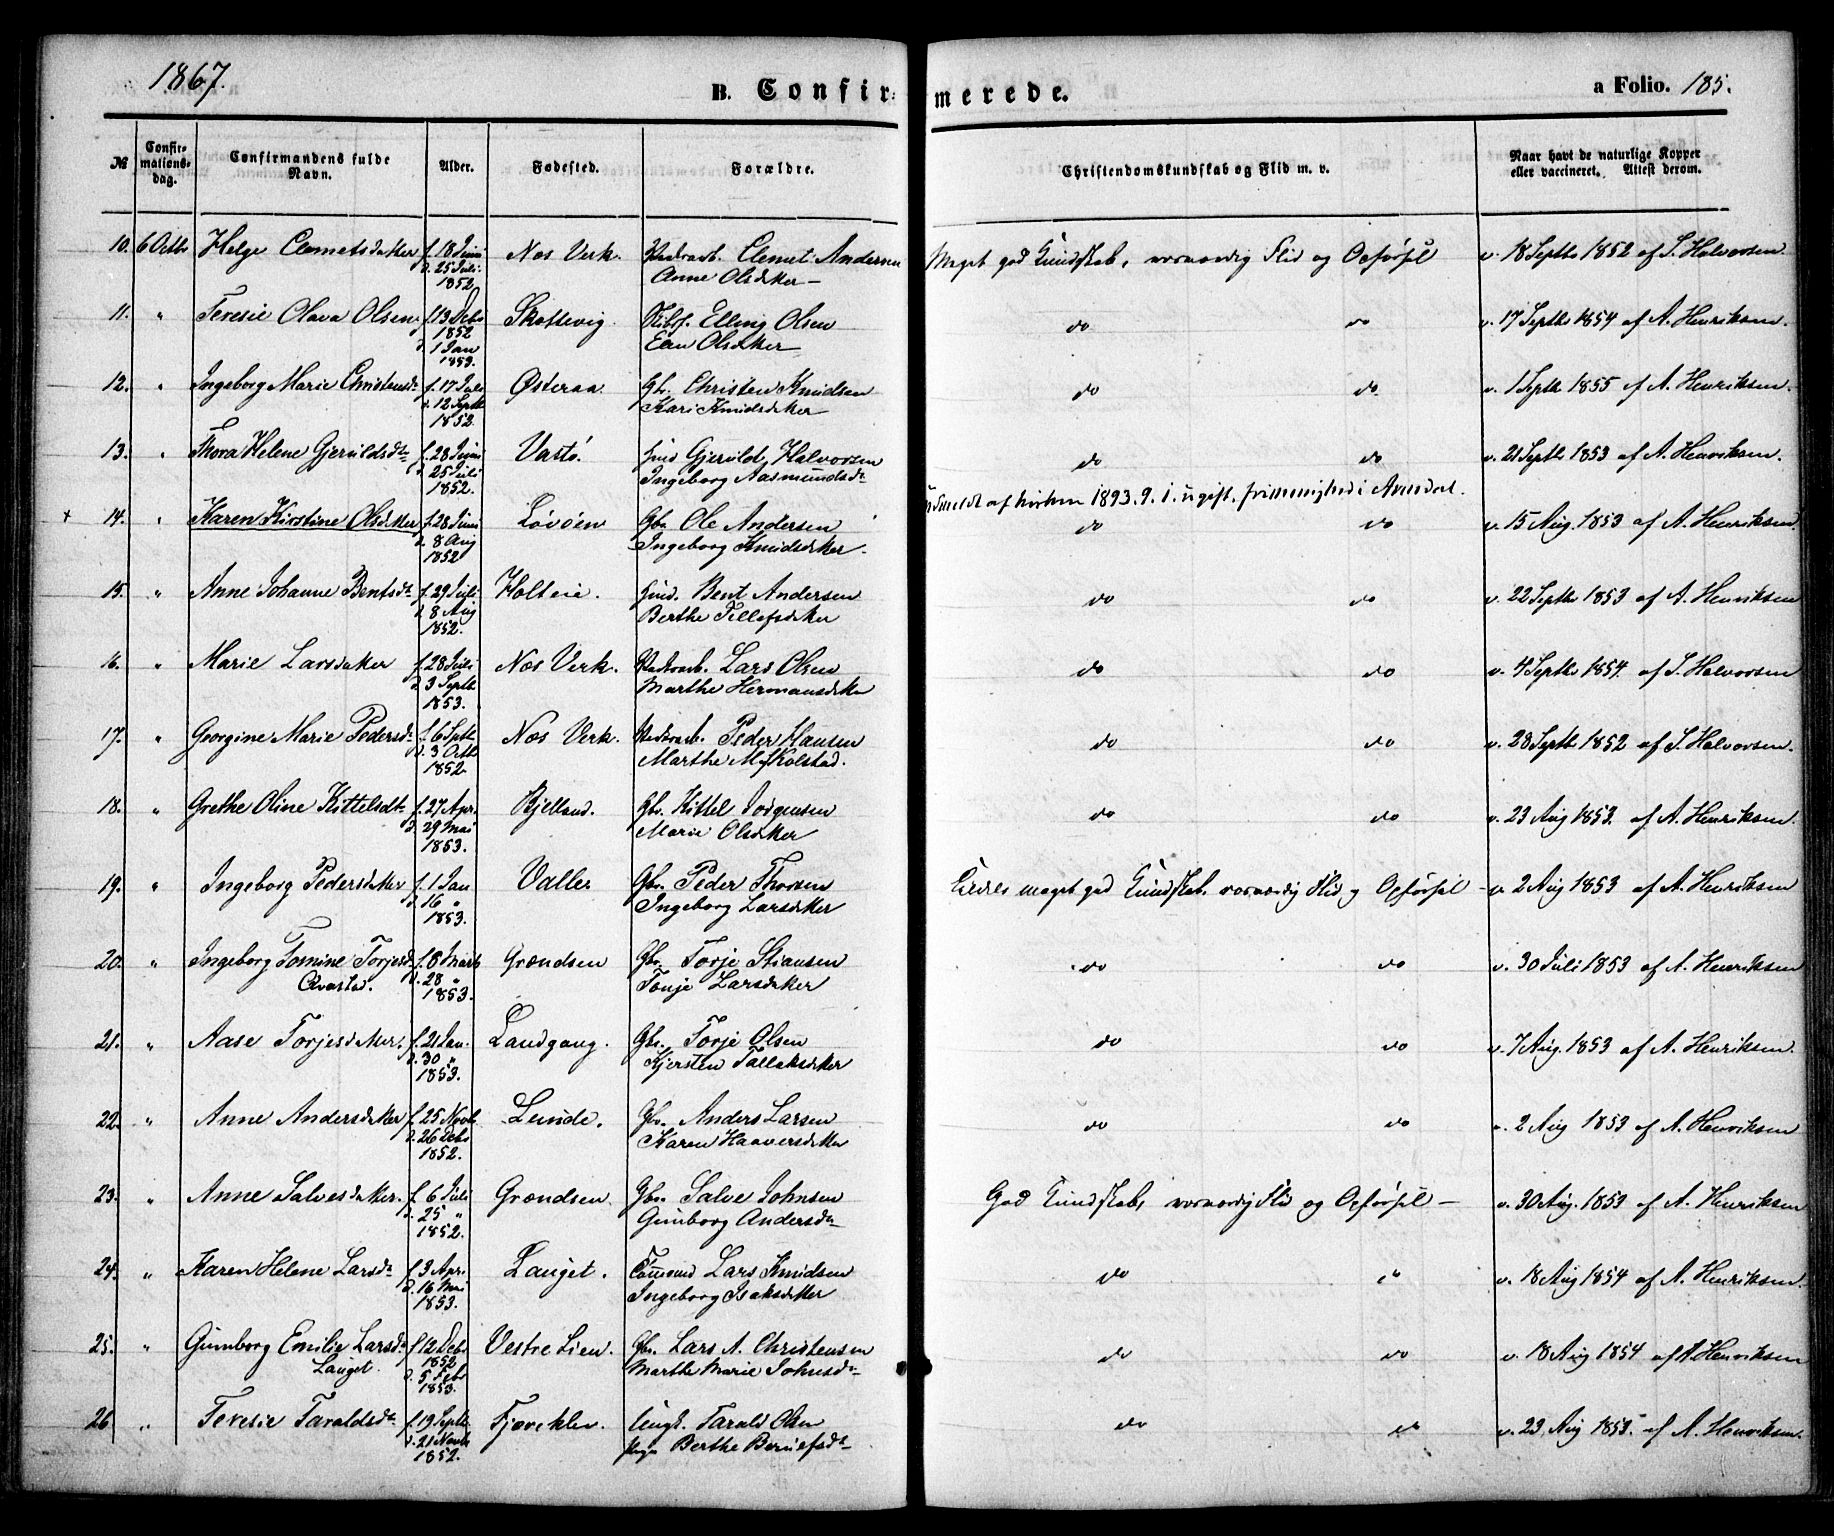 1867. B. Confir= merede. a Folio. 185.
№ Confir- mations- dag. Confirmandens fulde Navn. Alder. Fødested. Forældre. Christendomskundskab og Flid m. v. Naar havt de naturlige Kopper eller vaccineret. Attest derom.
10. 6 Octbr Helge Clemetsdatter f. 18 Juni Nes Verk. Clemet Andersen Meget god Kundskab, Flid og Opførsel v. 18 Septbr 1852 af S. Halvorsen.
d. 25 Juli 1852 Anne Olsdatter –
11. " Teresie Olava Olsen f. 13 Debr Skottevig. Elling Olsen do do v. 17 Septbr 1854 af A. Henriksen.
1852 d. 1 Jan 1853. Olsdatter
12. " Ingeborg Marie Christensdtr f. 17 Juli Østeraa. Gbr. Christen Knudsen do do v. 1 Septbr 1855 af A. Henriksen.
d. 12 Septbr 1852. Kari Knudsdatter
13. " Thora Helene Gjeruldsdtr f. 28 Juni Vastø. Gjeruld Halvorsen do do v. 21 Septbr 1853 af A. Henriksen.
d. 25 Juli 1852. Ingeborg Aasmundsdtr
udmeldt af kirken 1893. 9. 1. ugift, frimenighed i Arendal.
+ 14. " Karen Kirstine Olsdatter f. 28 Juni Løvøen Gbr. Ole Andersen do do v. 15 Aug. 1853 af A. Henriksen.
d. 8 Aug 1852 Ingeborg Knudsdatter.
15. " Anne Johanne Bentsdtr f. 29 Juli Holteie. Bent Andersen do do v. 22 Septbr 1853 af A. Henriksen
d. 8 Aug 1852. Berthe Tellefsdatter
16. " Marie Larsdatter f. 28 Juli Nes Verk. Lars Olsen do do v. 4 Septbr 1854. af S. Halvorsen
d. 3 Septbr 1853. Marthe Hermansdatter
17. " Georgine Marie Pedersdtr f. 6 Sptbr Nes Verk. Peder Hansen do do v. 28 Septbr 1852 af S. Halvorsen.
d. 3 Octbr 1852 Marthe M. Kolstad.
18. " Grethe Oline Kittelsdtr f. 27 Apr. Bjelland. Gbr. Kittel Jørgensen do do v. 23 Aug 1853. af A. Henriksen.
d. 29 Mai 1853. Marie Olsdatter
19. " Ingeborg Pedersdatter f. 1 Jan Valler Gbr. Peder Thorsen meget god Kundskab, Flid og Opførsel – v. 2 Aug 1853 af A. Henriksen
d. 16 " 1853. Ingeborg Larsdatter
20. " Ingeborg Tomine Torjesd. f. 8 Marts Grændsen Gbr. Torje Stiansen do do v. 30 Juli 1853 af A. Henriksen
d. 28 " 1853. Tonje Larsdatter
21. " Aase Torjesdatter. f. 21 Jan. Landgang. Gbr. Torje Olsen do do v. 7 Aug. 1853 af A. Henriksen.
d. 30 " 1853. Kjersten Tallaksdatter
22. " Anne Andersdatter f. 25 Novbr Lunde. Gbr. Anders Larsen do do v. 2 Aug 1853 af A. Henriksen
d. 26 Debr 1852. Karen Haaversdatter
23. " Anne Salvesdatter. f. 6 Juli Grændsen. Gbr. Salve Johnsen God Kundskab, Flid og Opførsel – v. 30 Aug. 1853 af A. Henriksen
d. 25 " 1852. Gunborg Andersdtr
24. " Karen Helene Larsdtr f. 3 Apr. Lauget. Lars Knudsen do do v. 18 Aug 1854 af A. Henriksen.
d. 16 Mai 1853. Ingeborg Isaksdatter
25. " Gunborg Emilie Larsdtr f. 12 Debr Vestre Lien. Gbr. Lars A. Christensen do do v. 18 Aug 1854 af A. Henriksen
Lauget. 1852 d. 5 Febr 1853. Marthe Marie Johnsdtr
26. " Teresie Taraldsdtr f. 19 Septbr Fjæreklev. Ungk. Tarald Olsen do do v. 23 Aug 1853. af A. Henriksen.
d. 21 Novbr 1852. Pige Berthe